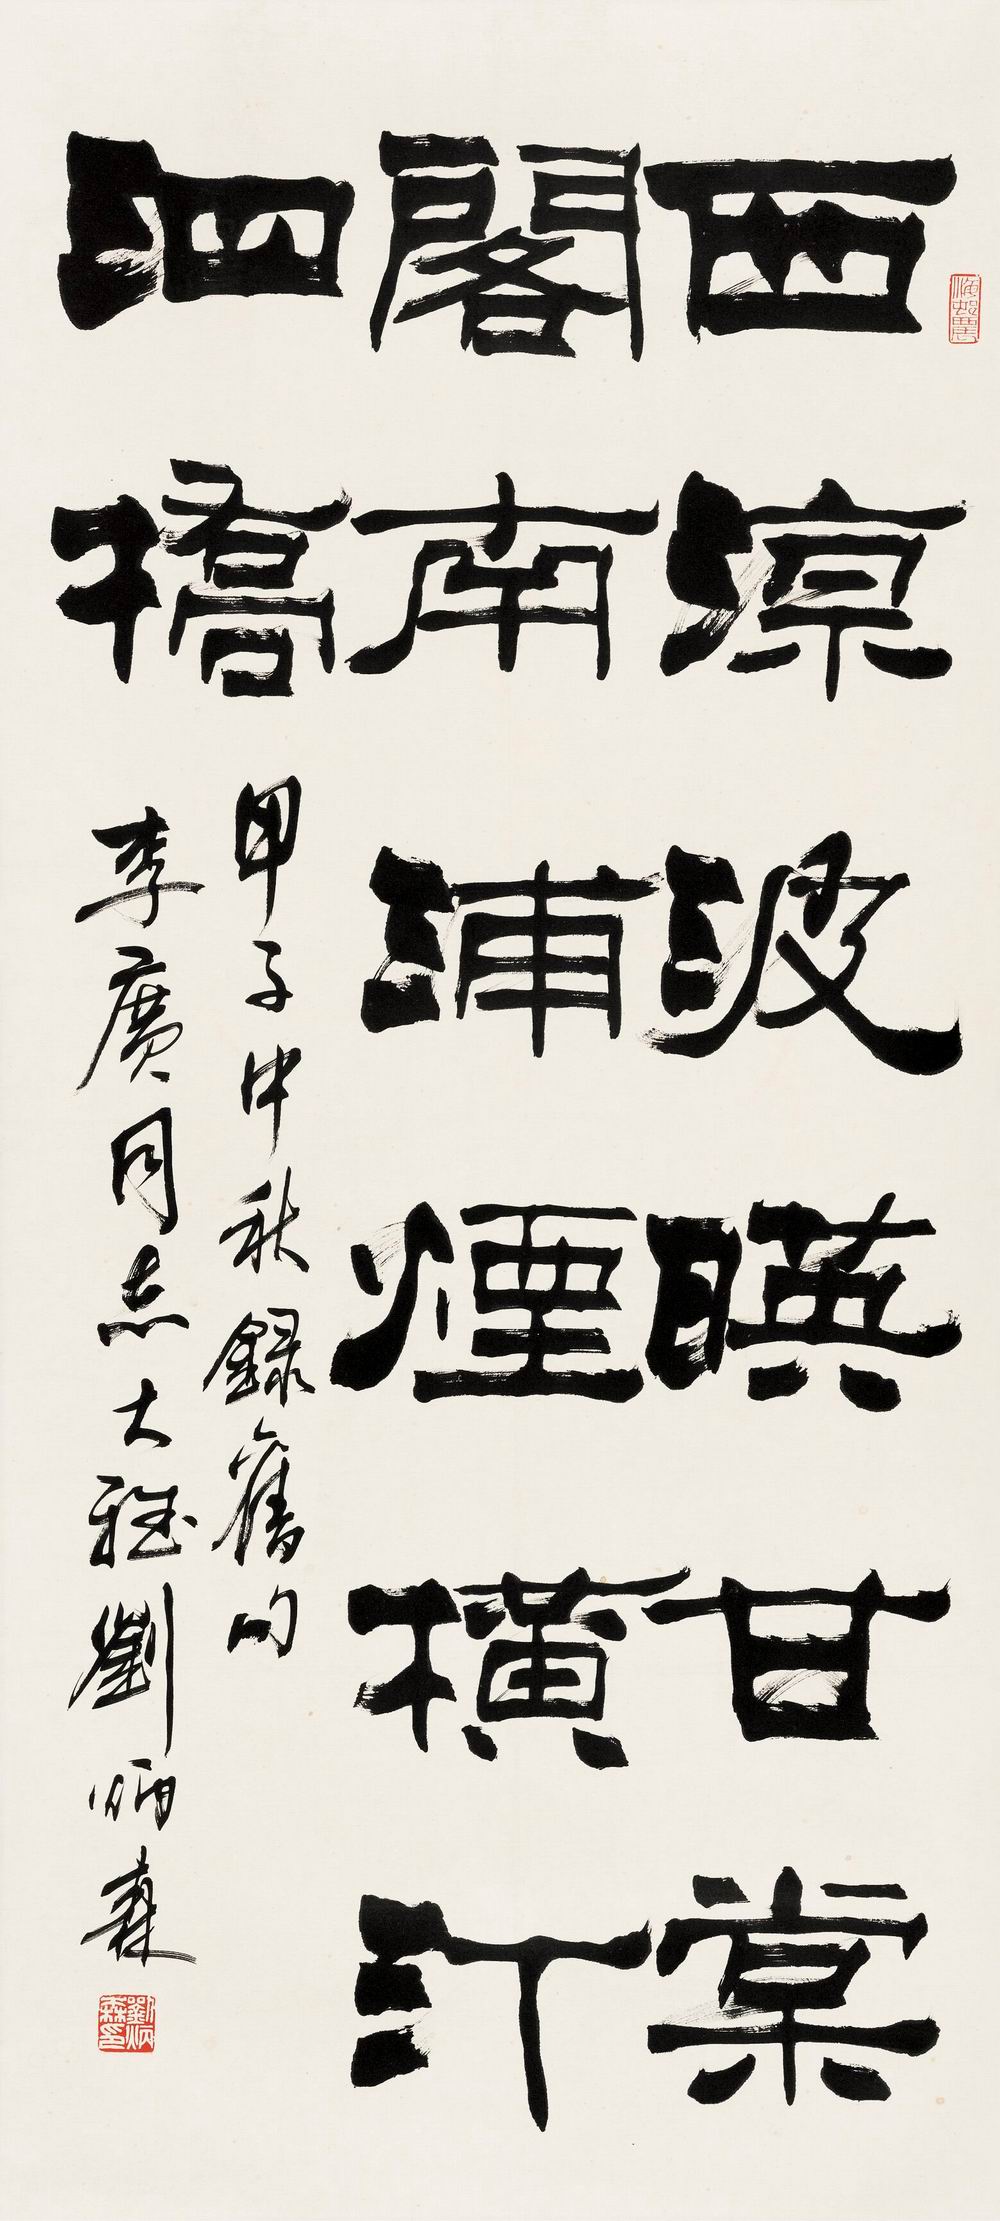 西涼波暎甘棠
閣南浦煙橫汀
泗橋
甲子中秋錄舊句
李廣同志大雅劉炳森
劉炳森印